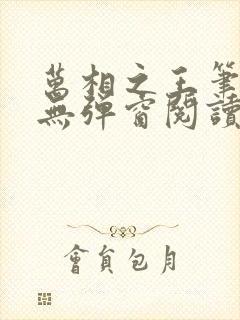 萬相之王筆
無彈窗閱讀
會員包月